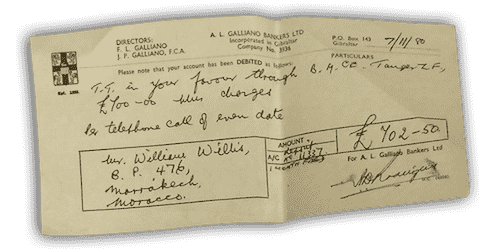 DIRECTORS:
F. L. GALLIANO
J. P. GALLIANO, F.C.A.
A. L. GALLIANO BANKERS LTD
Incorporated in Gibraltar
Company No. 3136
P.O. Box 143
Gibraltar
7/11/80
Please note that your account has been DEBITED as follows:
PARTICULARS
Est. 1855
T.T. in your favour through
B. M. CE - Tanger Z.F.,
£700-00 plus charges
Per telephone call of even date
Mr. William Willis,
B.P. 476,
Marrakech,
Morocco.
AMOUNT
£702-50
A/C
For A. L. Galliano Bankers Ltd